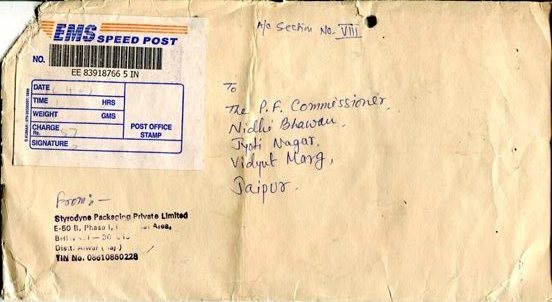 A/c Section No. VIII
EMS SPEED POST
NO.
EE 83918766 5 IN
DATE
TIME HRS
WEIGHT GMS
CHARGE
Rs.
SIGNATURE
POST OFFICE
STAMP
To
The P.F. Commissioner,
Nidhi Bhawan,
Jyoti Nagar,
Vidyut Marg,
Jaipur.
From:-
Styrodyne Packaging Private Limited
E-50 B, Phase I, Area,
Distt. Alwar (Raj.)
TIN No. 08610860228